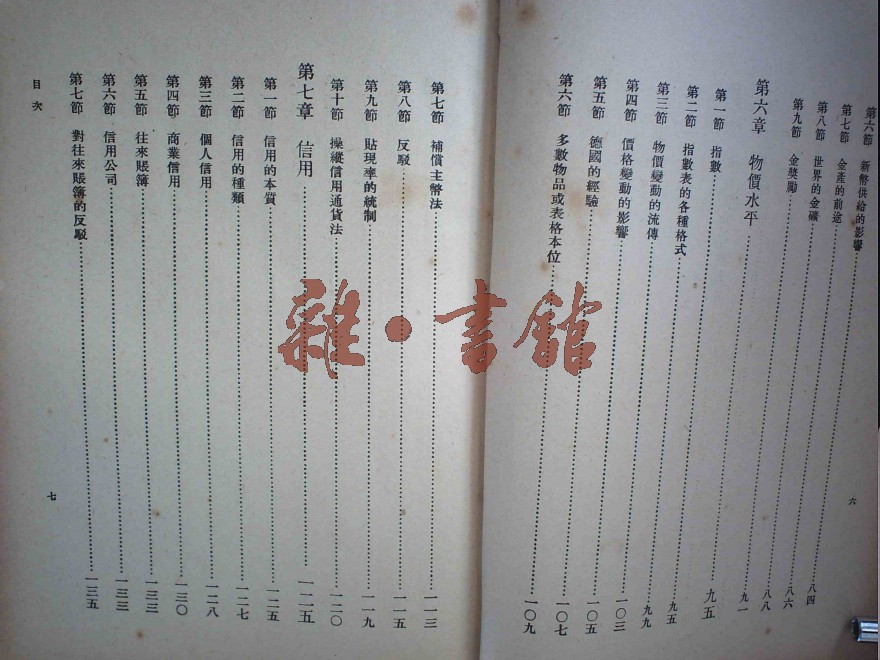 第六節 新幣供給的影響……八四
第七節 金產的前途……八六
第八節 世界的金礦……八八
第九節 金獎勵……九一
第六章 物價水平……九五
第一節 指數……九五
第二節 指數表的各種格式……九九
第三節 物價變動的流傳……一〇三
第四節 價格變動的影響……一〇五
第五節 德國的經驗……一〇七
第六節 多數物品或表格本位……一〇九
六
第七節 補償主幣法……一一三
第八節 反駁……一一五
第九節 貼現率的統制……一一九
第十節 操縱信用通貨法……一二〇
第七章 信用……一二五
第一節 信用的本質……一二五
第二節 信用的種類……一二七
第三節 個人信用……一二八
第四節 商業信用……一三〇
第五節 往來賬簿……一三三
第六節 信用公司……一三三
第七節 對往來賬簿的反駁……一三五
目次
七
雜·書館